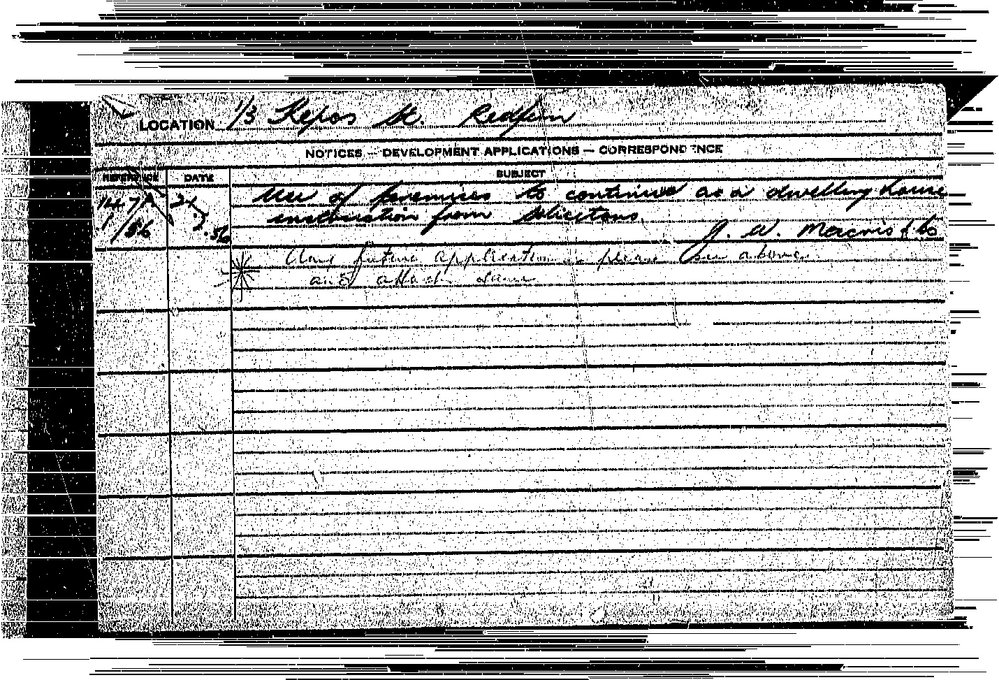 LOCATION 1/3 Kepos St. Redfern
NOTICES — DEVELOPMENT APPLICATIONS — CORRESPONDENCE
REFERENCE DATE SUBJECT
Use of premises to continued as a dwelling house
instruction from Solicitors.
J. W. Macris & Co
Any future application please see above
and attach same